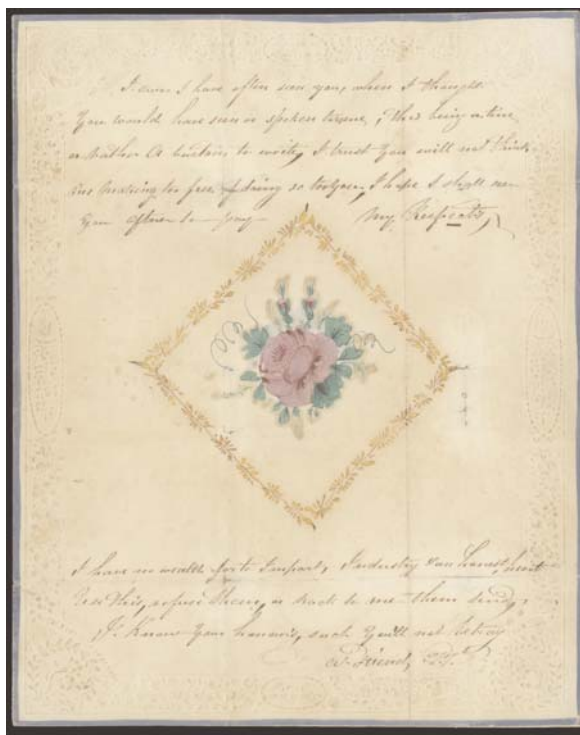 I own I have often seen you, when I thought
You would have seen or spoken to me, this being a time
or rather a certain to write, I trust you will not think
me making too free of doing so to you, I hope I shall see
you often to pay My Respects,
I have no wealth for to Impart, Industry & an honest heart
Use this, refuse them, or back to me them send,
I Know your honour's, such You'll not betray
A Friend,